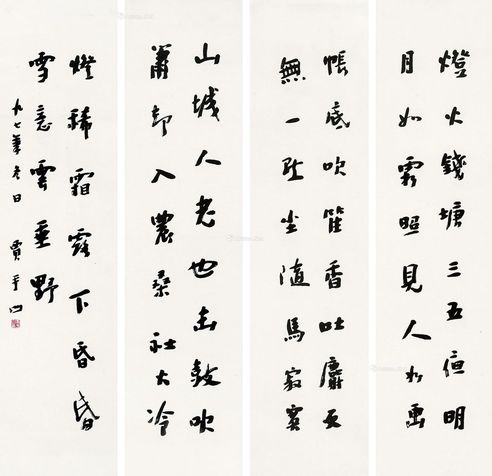 燈火錢塘三五夜明
月如霜照見人如畫
帳底吹笙香吐麝更
無一點尘隨馬寂寞
山城人老也击鼓吹
簫却入農桑社火冷
燈稀霜露下昏昏
雪意雲垂野
九七年冬日 賈平凹